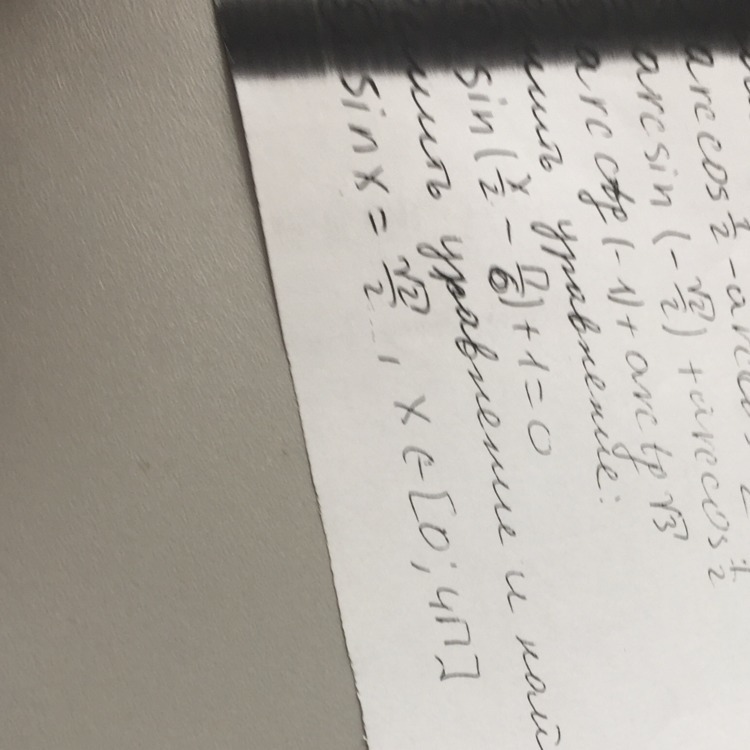 arccos 1/2 -
arcsin (-√2/2) + arccos 1/2
arcctg (-1) + arctg √3
уравнение:
sin(x/2 - π/6) + 1 = 0
уравнение и
sin x = √2/2, x ∈ [0; 4π]